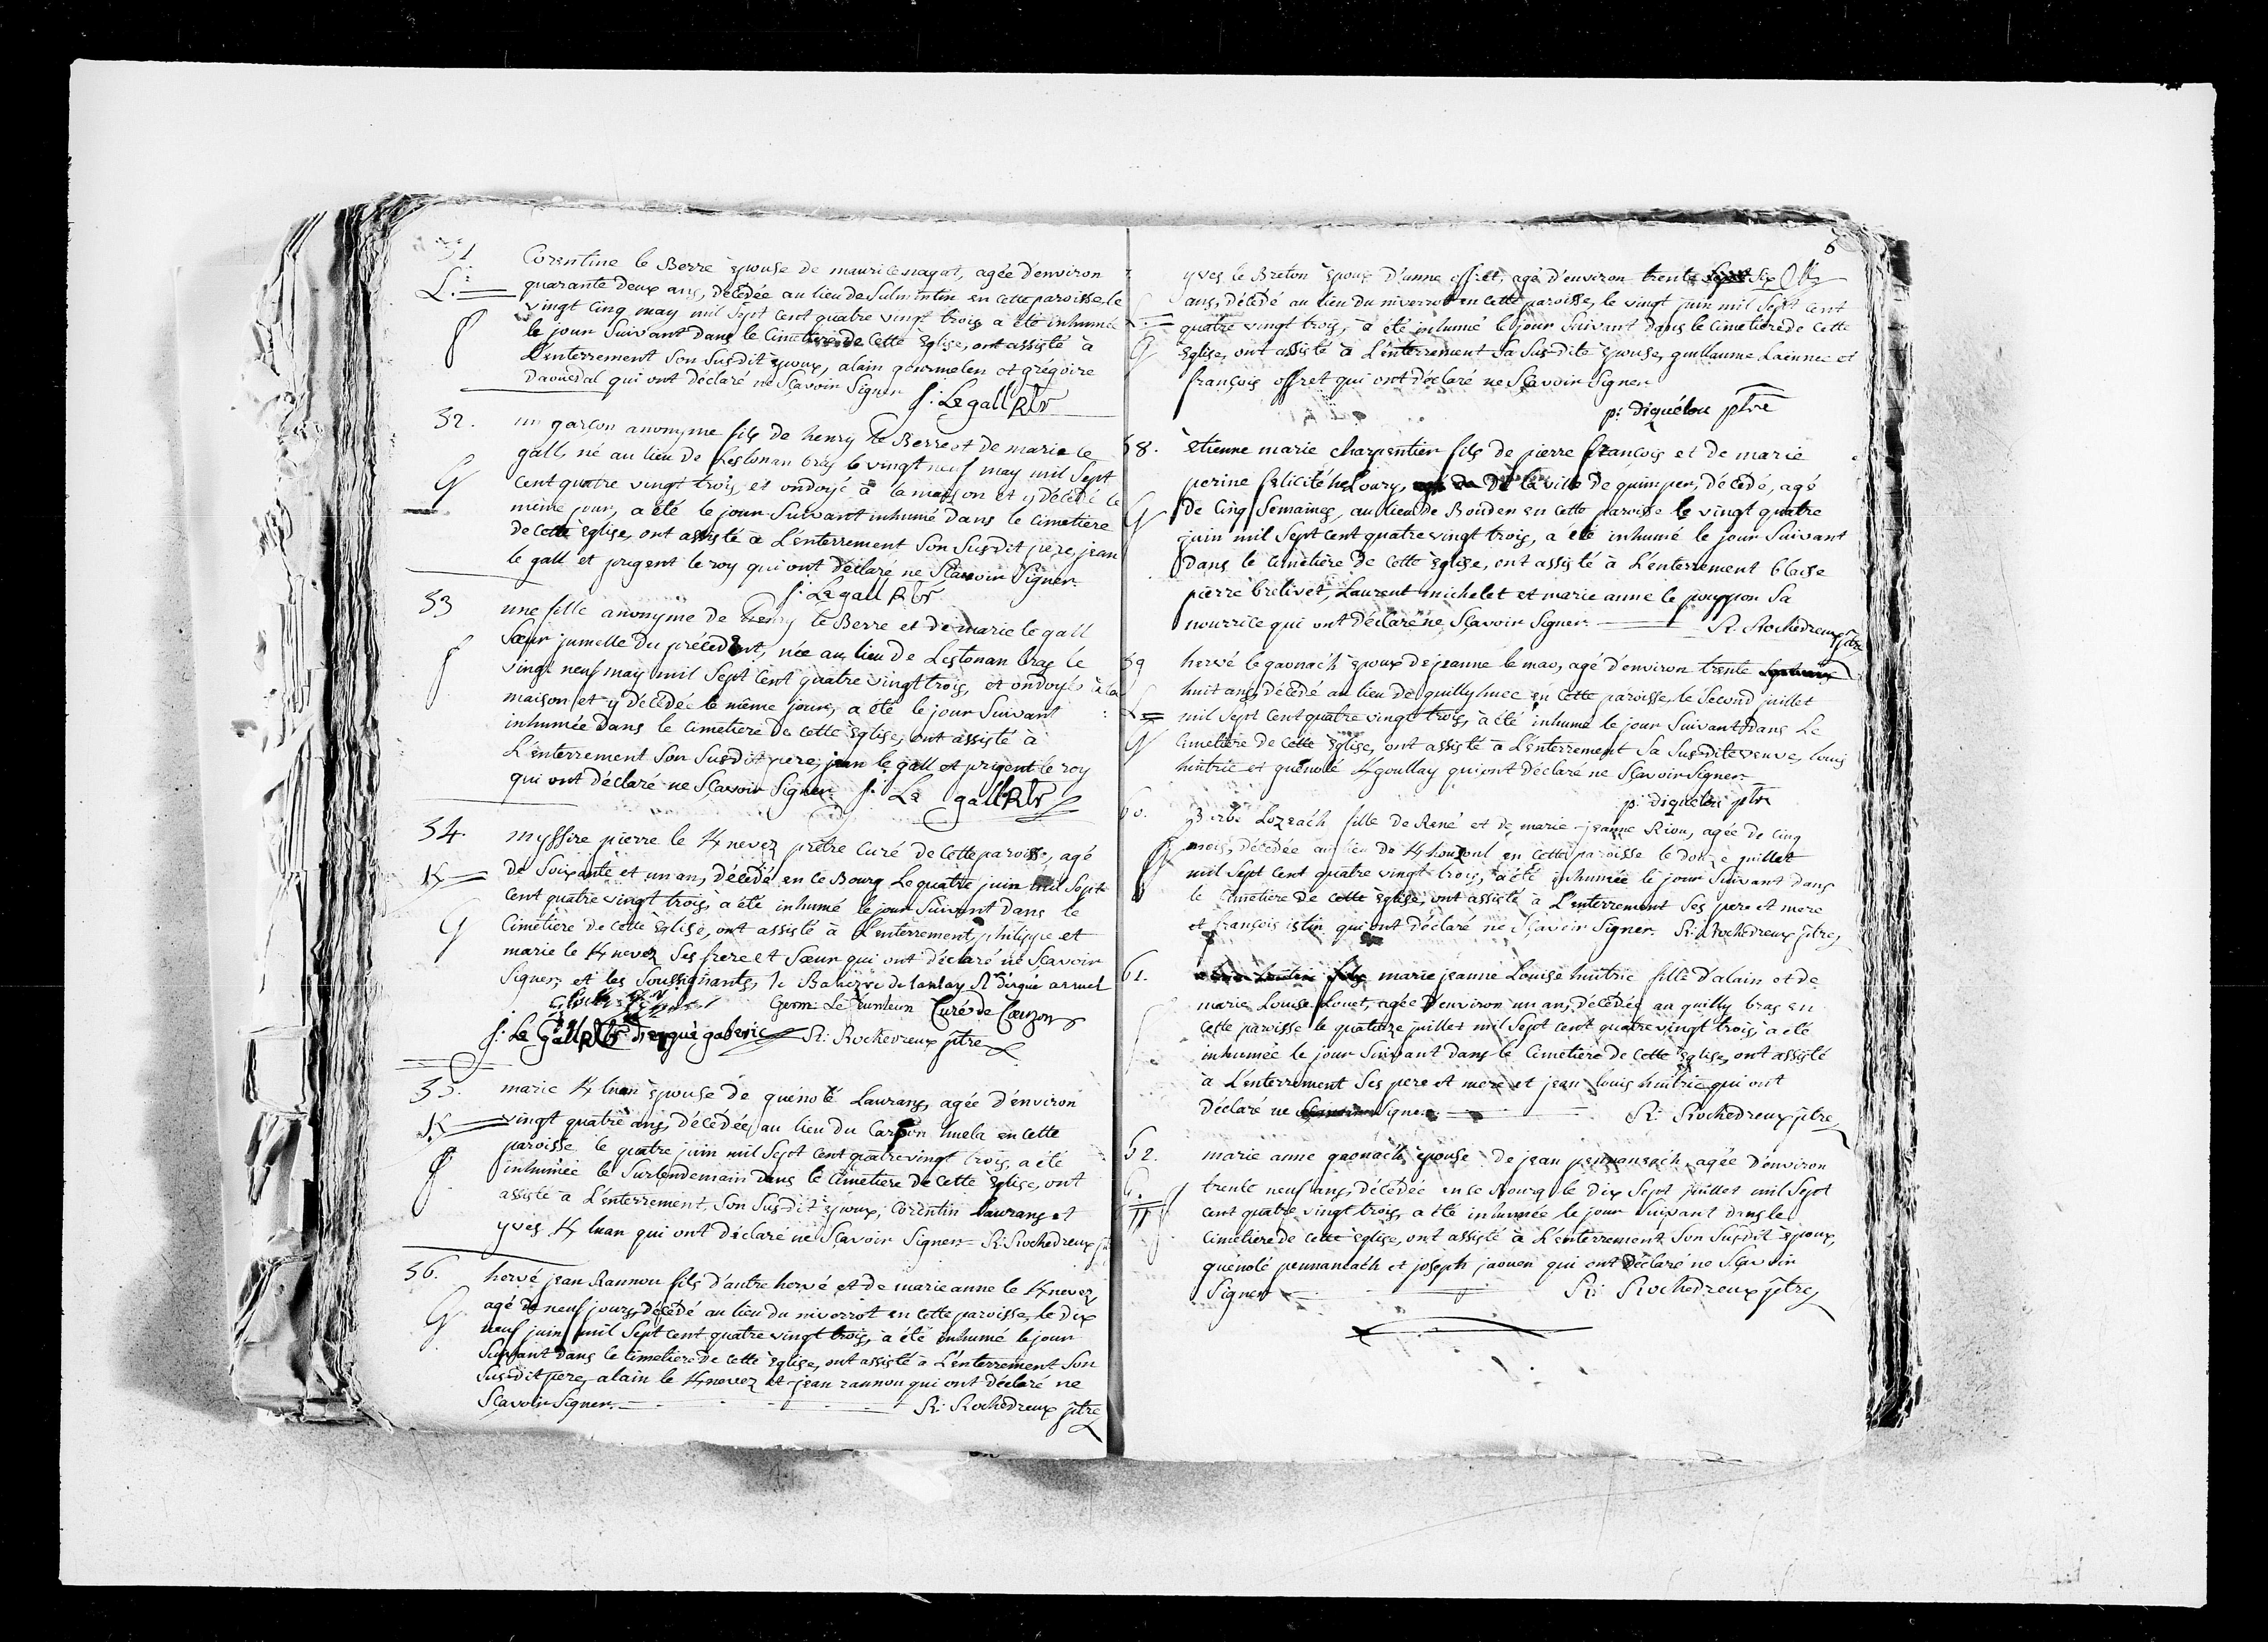 51 Corentine le Berre épouse de maurice nagat, agée d'environ
L. quarante deux ans, décédée au lieu de Sulvintin en cette paroisse, le
vingt cinq may mil Sept cent quatre vingt trois, a été inhumée
le jour Suivant dans le Cimetiere de Cette Eglise, ont assisté à
L'enterrement Son Susdit époux, alain gourmelen et grégoire
Daouedal qui ont déclaré ne Sçavoir Signer
f: Le gall Rtr
52. un garçon anonyme fils de henry le Berre et de marie le
gall, né au lieu de Lestonan bras le vingt neuf may mil Sept
G cent quatre vingt trois, et ondoyé à la maison et y décédé le
même jour, a été le jour Suivant inhumé dans le Cimetière
de cette Eglise, ont assisté à L'enterrement Son Susdit pere, jean
le gall et prigent le roy qui ont déclaré ne Sçavoir Signer.
f: Le gall Rtr
53 une fille anonyme de henry le Berre et de marie le gall
Sœur jumelle du précédent, née au lieu de Lestonan bras le
f vingt neuf may mil Sept Cent quatre vingt trois, et ondoyée à la
maison et y décédée le même jour, a été le jour Suivant
inhumée dans le Cimetiere de cette Eglise, ont assisté à
L'enterrement Son Susdit pere, jean le gall et prigent le roy
qui ont déclaré ne Sçavoir Signer f: Le gall Rtr
54. Myssire pierre le Knevez prêtre Curé de Cette paroisse, agé
K de Soixante et un ans, décédé en ce Bourg Le quatre juin mil Sept
Cent quatre vingt trois, a été inhumé le jour Suivant dans le
G Cimetière de cette Eglise, ont assisté à L'enterrement, philippe et
marie le Knevez Ses frere et Sœur qui ont déclaré ne Sçavoir
Signer, et les Soussignants,
Curé de
f: Le Gall Rtr d'ergué gaberic R: Rochedreux ptre
55. marie K luan épouse de guénolé Laurans, agée d'environ
K vingt quatre ans, décédée, au lieu du huela en cette
paroisse le quatre juin mil Sept Cent quatre vingt trois, a été
f inhumée le Surlendemain dans le Cimetiere de Cette Eglise, ont
assisté à L'enterrement, Son Susdit époux, Corentin Laurans et
yves K luan qui ont déclaré ne Sçavoir Signer R: Rochedreux
56. hervé jean Rannou fils d'autre hervé et de marie anne le Knevez
G agé de neuf jours, décédé au lieu du niverrot en cette paroisse, le dix
neuf juin mil Sept cent quatre vingt trois, a été inhumé le jour
Suivant dans le Cimetiere de cette Eglise, ont assisté à L'enterrement Son
Susdit pere, alain le Knevez et jean rannou qui ont déclaré ne
Sçavoir Signer. R: Rochedreux ptre
6
yves le Breton époux d'anne offret, agé d'environ trente Six
ans, décédé au lieu du niverrot en cette paroisse, le vingt juin mil Sept Cent
quatre vingt trois, a été inhumé le jour Suivant dans le Cimetiere de Cette
G Eglise, ont assisté à L'enterrement Sa Susdite épouse, guillaume Laënnec et
françois offret qui ont déclaré ne Sçavoir Signer
p: diquélou ptre
58. Etienne marie Charpentier fils de pierre françois et de marie
perine félicité De la ville de quimper, décédé, agé
G de Cinq Semaines, au lieu de Boiden en cette paroisse le vingt quatre
juin mil Sept cent quatre vingt trois, a été inhumé le jour Suivant
dans le Cimetière de Cette Eglise, ont assisté à L'enterrement blaise
pierre brélivet, Laurent michelet et marie anne le pouppon Sa
nourrice qui ont déclaré ne Sçavoir Signer R. Rochedreux ptre
59 hervé le gaonach époux de jeanne le mao, agé d'environ trente
huit ans, décédé au lieu de quillyhuec en Cette paroisse, le Second juillet
L mil Sept Cent quatre vingt trois, a été inhumé le jour Suivant dans Le
G Cimetiere de Cette Eglise, ont assisté à L'enterrement Sa Susdite veuve, louis
huitric et guénolé K goullay qui ont déclaré ne Sçavoir Signer
p: diquélou ptre
60. Barbe Lozeach fille de René et de marie-jeanne Riou, agée de Cinq
mois, décédée au lieu de en cette paroisse le douze juillet
mil Sept Cent quatre vingt trois, a été inhumée le jour Suivant dans
le Cimetiere de cette Eglise, ont assisté à L'enterrement Ses pere et mere
et françois istin qui ont déclaré ne Sçavoir Signer. R: Rochedreux ptre
61. marie jeanne Louise huitric fille d'alain et de
marie Louise Louet, agée d'environ un an, décédée au quilly bras en
cette paroisse le quatorze juillet mil Sept cent quatre vingt trois, a été
inhumée le jour Suivant dans le Cimetiere de cette Eglise, ont assisté
à L'enterrement Ses pere et mere et jean louis huitric qui ont
déclaré ne Signer R: Rochedreux ptre
62. marie anne gaonach épouse de jean pennaneach, agée d'environ
G. trente neuf ans, décédée en ce Bourg le dix Sept juillet mil Sept
cent quatre vingt trois, a été inhumée le jour Suivant dans le
Cimetiere de cette Eglise, ont assisté à L'enterrement Son Susdit époux,
guénolé pennaneach et joseph jaouen qui ont déclaré ne Sçavoir
Signer R: Rochedreux ptre